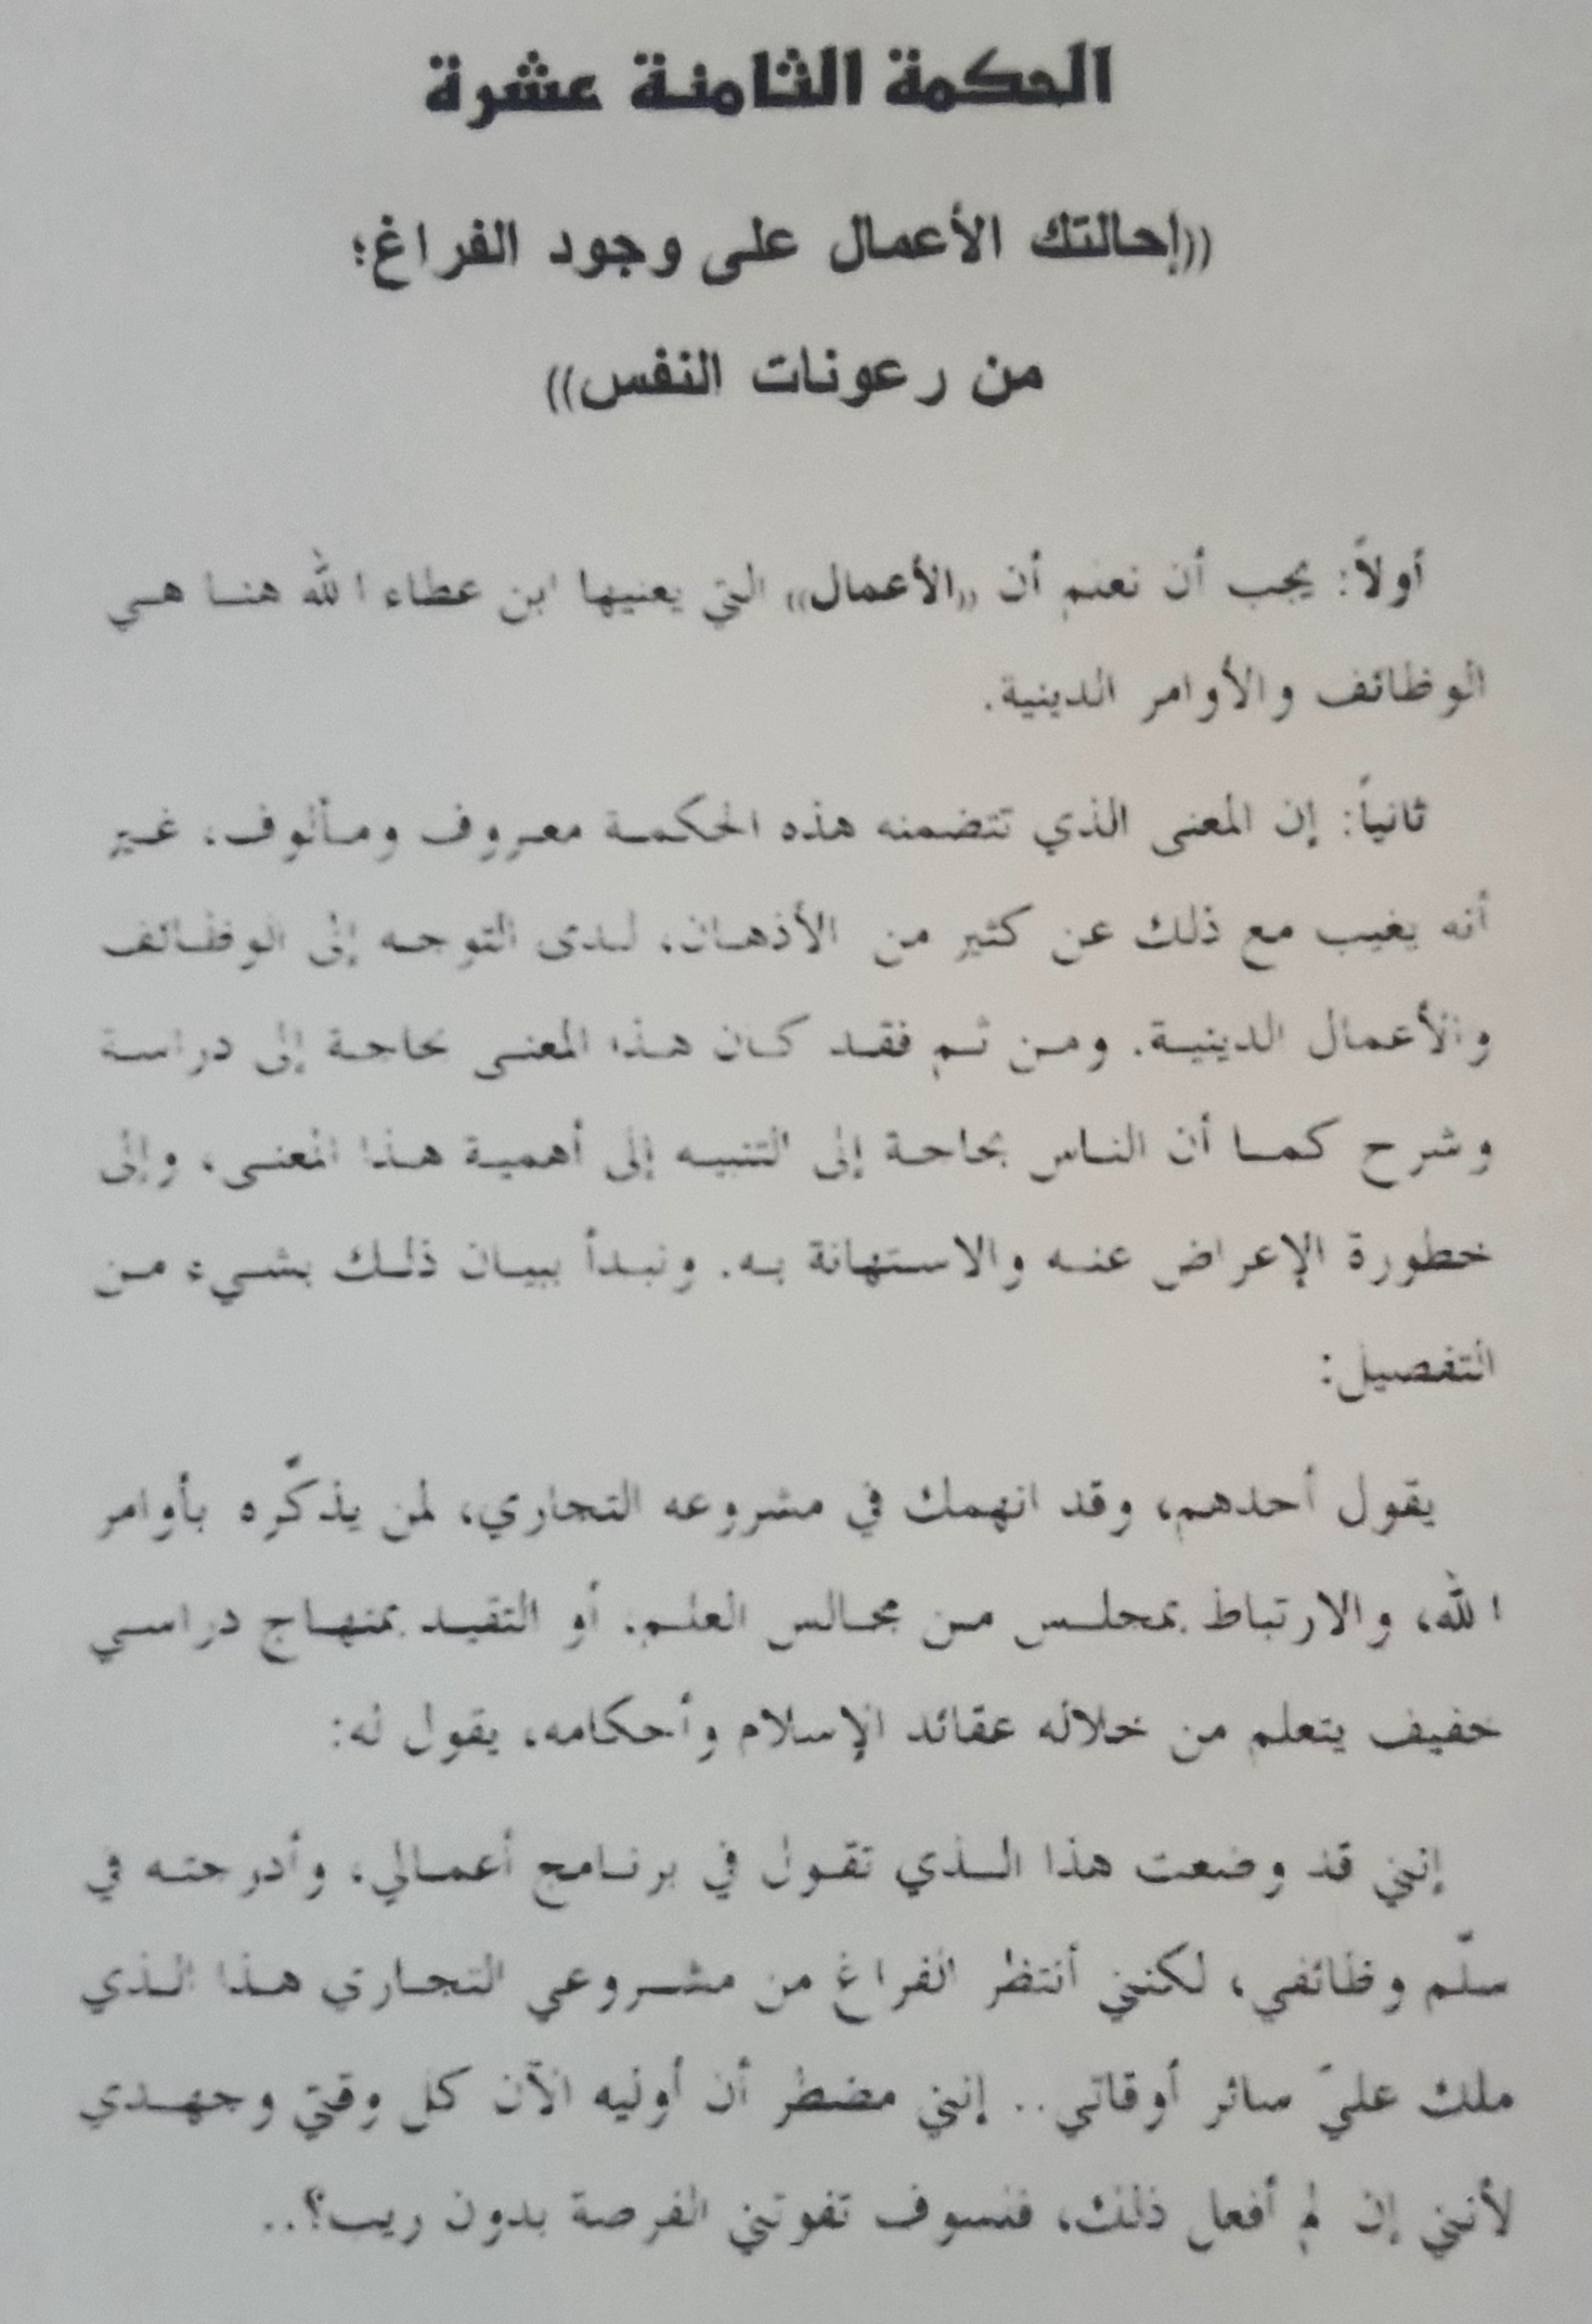 الحكمة الثامنة عشرة
((إحالتك الأعمال على وجود الفراغ؛
من رعونات النفس))
أولاً: يجب أن نعلم أن ((الأعمال)) التي يعنيها ابن عطاء الله هنا هي
الوظائف والأوامر الدينية.
ثانياً: إن المعنى الذي تتضمنه هذه الحكمة معروف ومألوف، غير
أنه يغيب مع ذلك عن كثير من الأذهان، لدى التوجه إلى الوظائف
والأعمال الدينية. ومن ثم فقد كان هذا المعنى بحاجة إلى دراسة
وشرح كما أن الناس بحاجة إلى التنبيه إلى أهمية هذا المعنى، وإلى
خطورة الإعراض عنه والاستهانة به. ونبدأ ببيان ذلك بشيء من
التفصيل:
يقول أحدهم، وقد انهمك في مشروعه التجاري، لمن يذكّره بأوامر
الله، والارتباط بمجلس من مجالس العلم. أو التقيد بمنهاج دراسي
خفيف يتعلم من خلاله عقائد الإسلام وأحكامه، يقول له:
إنني قد وضعت هذا الذي تقول في برنامج أعمالي، وأدرجته في
سلّم وظائفي، لكنني أنتظر الفراغ من مشروعي التجاري هذا الذي
ملك عليّ سائر أوقاتي.. إنني مضطر أن أوليه الآن كل وقتي وجهدي
لأنني إن لم أفعل ذلك، فلسوف تفوتني الفرصة بدون ريب؟..